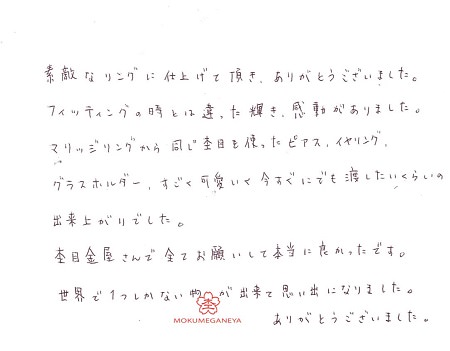 素敵なリングに仕上げて頂き、ありがとうございました。
フィッティングの時とは違った輝き、感動がありました。
マリッジリングから同じ杢目を使ったピアス、イヤリング、
グラスホルダー、すごく可愛いく今すぐにでも渡したいくらいの
出来上がりでした。
杢目金屋さんで全てお願いして本当に良かったです。
世界で1つしかない物が出来て思い出になりました。
杢
MOKUMEGANEYA
ありがとうございました。